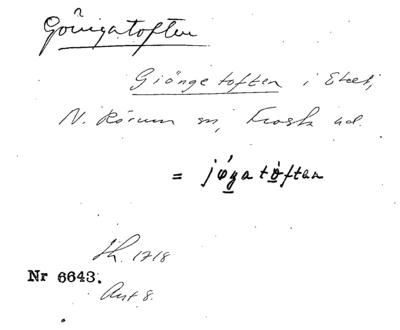 Göingatoften
Giöngetoften i
N. Rörum sn, Frosta hd.
= jøŋatoftan
1718
Nr 6643.
Ant 8.